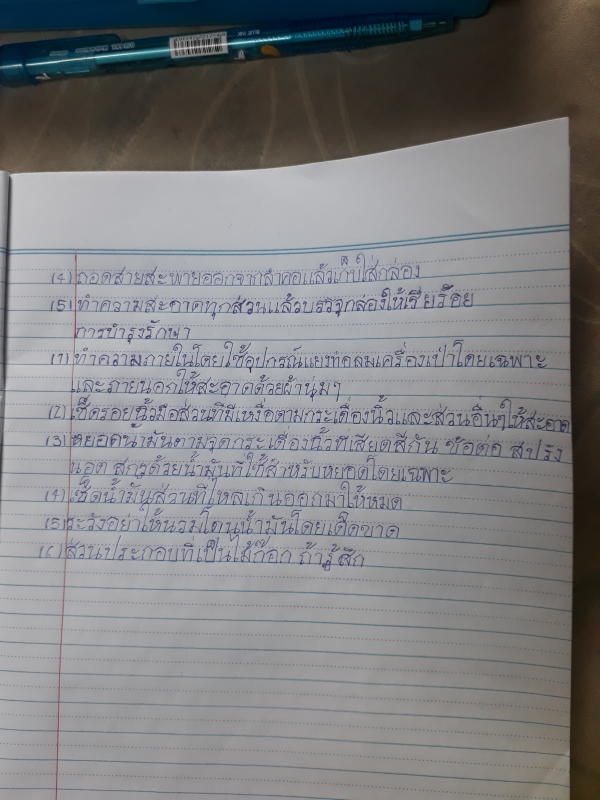 BLUE INK
(4) ถอดสายสะพายออกจากลำคอแล้วเก็บใส่กล่อง
(5) ทำความสะอาดทุกส่วนแล้วบรรจุกล่องให้เรียร้อย
การบำรุงรักษา
(1) ทำความภายในโดยใช้อุปกรณ์แยงท่อลมเครื่องเป่าโดยเฉพาะ
และภายนอกให้สะอาดด้วยผ้านุ่มๆ
(2) เช็ดรอยนิ้วมือส่วนที่มีเหงื่อตามกระเดื่องนิ้วและส่วนอื่นๆให้สะอาด
(3) หยอดน้ำมันตามจุดกระเดื่องนิ้วที่เสียดสีกัน ข้อต่อ สปริง
นอต สกรูด้วยน้ำมันที่ใช้สำหรับหยอดโดยเฉพาะ
(4) เช็ดน้ำมันส่วนที่ไหลเกินออกมาให้หมด
(5) ระวังอย่าให้นวมโดนน้ำมันโดยเด็ดขาด
(6) ส่วนประกอบที่เป็นไม้ก๊อก ถ้ารู้สึก